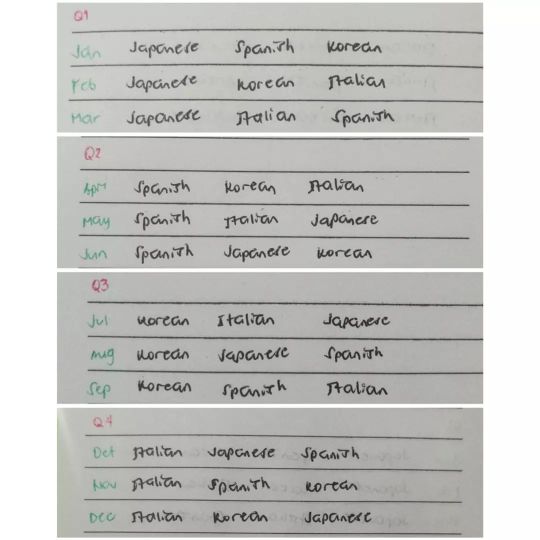 Q1
Jan Japanese Spanish Korean
Feb Japanese Korean Italian
Mar Japanese Italian Spanish
Q2
Apr Spanish Korean Italian
May Spanish Italian Japanese
Jun Spanish Japanese Korean
Q3
Jul Korean Italian Japanese
Aug Korean Japanese Spanish
Sep Korean Spanish Italian
Q4
Oct Italian Japanese Spanish
Nov Italian Spanish Korean
Dec Italian Korean Japanese